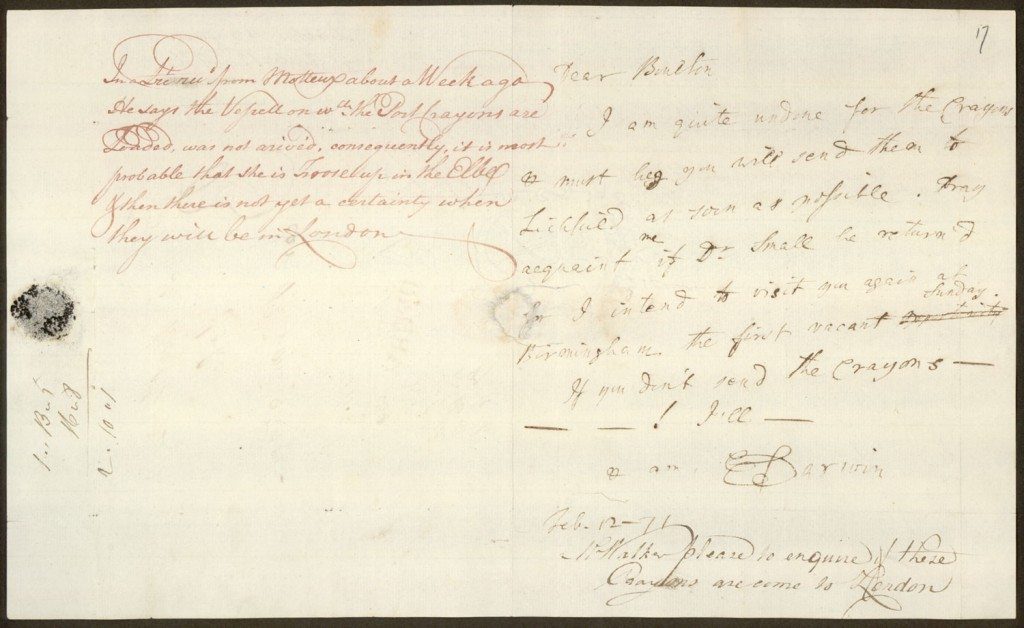 In a Lre recd from Motteux about a Week ago
He says the Vessell on wch the Port Crayons are
Loaded, was not arived, consequently, it is most
probable that she is Froose up in the Elbe
& then there is not yet a certainty when
they will be in London
17
Dear Boulton
I am quite undone for the Crayons
& must beg you will send them to
Lichfield as soon as possible. Pray
acquaint me if Dr Small be return'd
for I intend to visit you again at
Birmingham the first vacant Sunday.
If you don't send the Crayons —
— — ! I'll —
& am. EDarwin
Feb. 12-71
Mr Walker please to enquire if these
Crayons are come to London